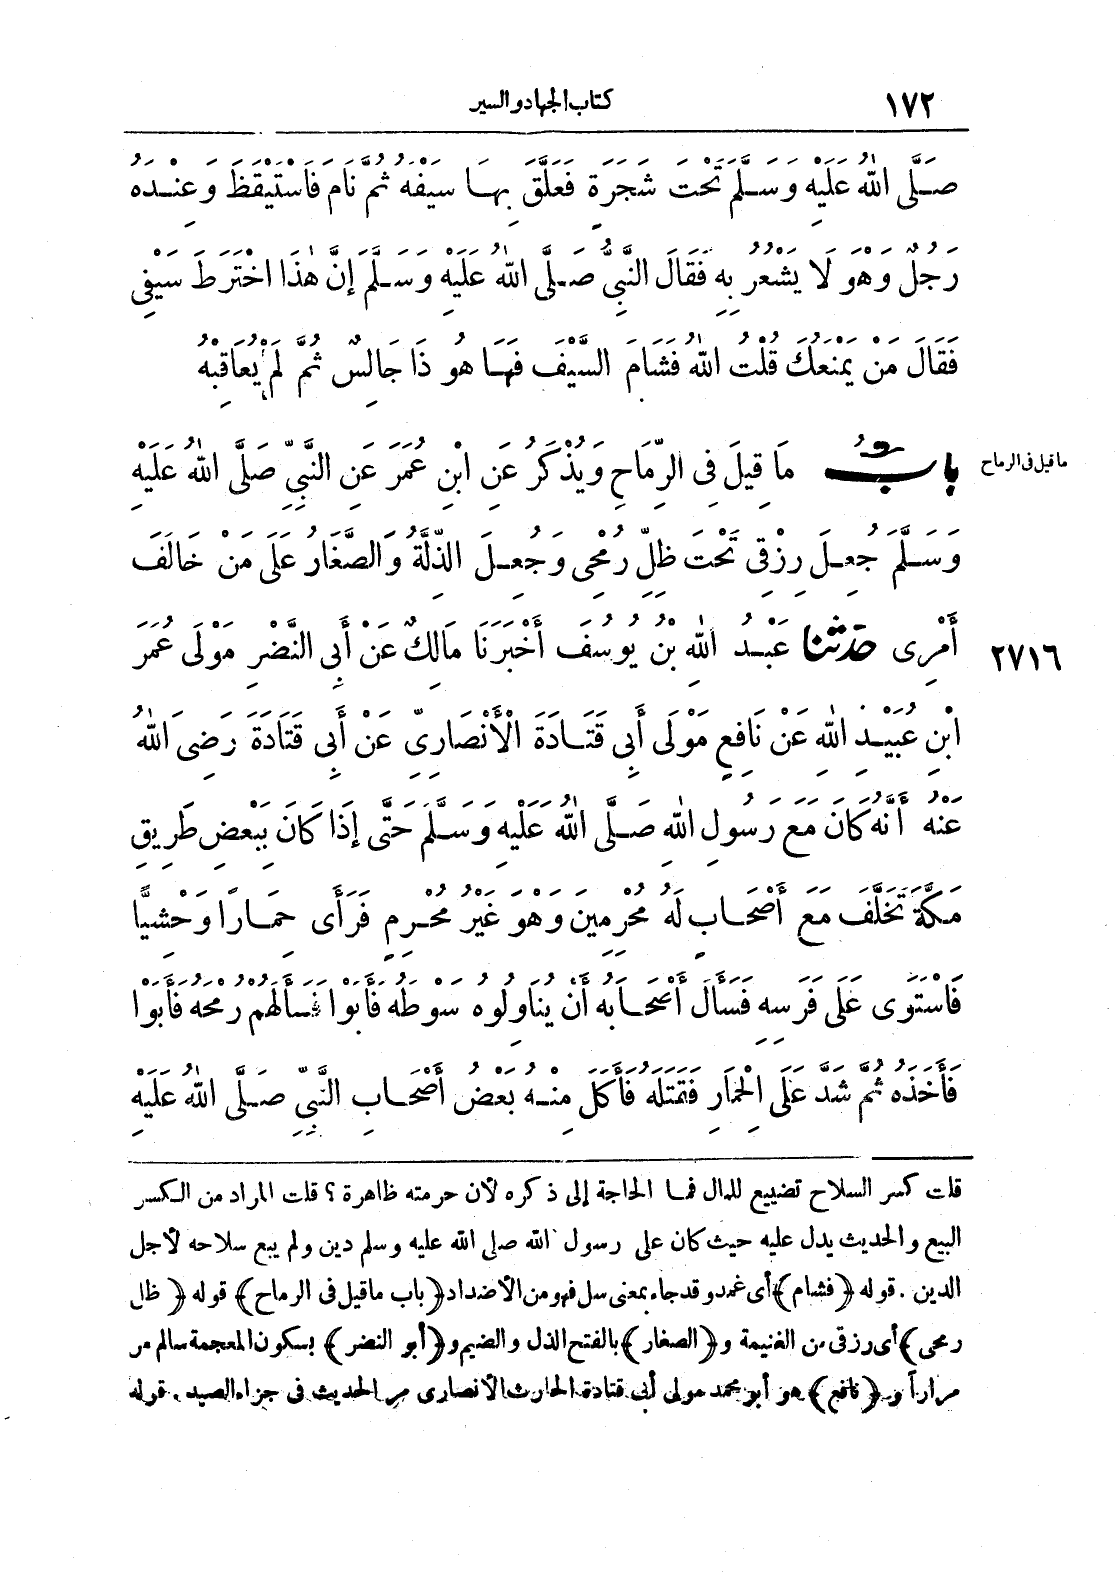 ١٧٢
كتاب الجهاد والسير
صَلَّى اللهُ عَلَيْهِ وَسَلَّمَ تَحْتَ شَجَرَةٍ فَعَلَّقَ بِهَا سَيْفَهُ ثُمَّ نَامَ فَاسْتَيْقَظَ وَعِنْدَهُ
رَجُلٌ وَهْوَ لَا يَشْعُرُ بِهِ فَقَالَ النَّبِىُّ صَلَّى اللهُ عَلَيْهِ وَسَلَّمَ إِنَّ هٰذَا اخْتَرَطَ سَيْفِى
فَقَالَ مَنْ يَمْنَعُكَ قُلْتُ اللهُ فَشَامَ السَّيْفَ فَهَا هُوَ ذَا جَالِسٌ ثُمَّ لَمْ يُعَاقِبْهُ
ما قيل فى الرماح
بَابُ مَا قِيلَ فِى الرِّمَاحِ وَيُذْكَرُ عَنِ ابْنِ عُمَرَ عَنِ النَّبِىِّ صَلَّى اللهُ عَلَيْهِ
وَسَلَّمَ جُعِلَ رِزْقِى تَحْتَ ظِلِّ رُمْحِى وَجُعِلَ الذِّلَّةُ وَالصَّغَارُ عَلَى مَنْ خَالَفَ
٢٧١٦
أَمْرِى حَدَّثَنَا عَبْدُ اللهِ بْنُ يُوسُفَ أَخْبَرَنَا مَالِكٌ عَنْ أَبِى النَّضْرِ مَوْلَى عُمَرَ
ابْنِ عُبَيْدِ اللهِ عَنْ نَافِعٍ مَوْلَى أَبِى قَتَادَةَ الْأَنْصَارِىِّ عَنْ أَبِى قَتَادَةَ رَضِىَ اللهُ
عَنْهُ أَنَّهُ كَانَ مَعَ رَسُولِ اللهِ صَلَّى اللهُ عَلَيْهِ وَسَلَّمَ حَتَّى إِذَا كَانَ بِبَعْضِ طَرِيقِ
مَكَّةَ تَخَلَّفَ مَعَ أَصْحَابٍ لَهُ مُحْرِمِينَ وَهْوَ غَيْرُ مُحْرِمٍ فَرَأَى حِمَارًا وَحْشِيًّا
فَاسْتَوَى عَلَى فَرَسِهِ فَسَأَلَ أَصْحَابَهُ أَنْ يُنَاوِلُوهُ سَوْطَهُ فَأَبَوْا فَسَأَلَهُمْ رُمْحَهُ فَأَبَوْا
فَأَخَذَهُ ثُمَّ شَدَّ عَلَى الْحِمَارِ فَقَتَلَهُ فَأَكَلَ مِنْهُ بَعْضُ أَصْحَابِ النَّبِىِّ صَلَّى اللهُ عَلَيْهِ
قلت كسر السلاح تضييع للمال فما الحاجة إلى ذكره لأن حرمته ظاهرة ؟ قلت المراد من الكسر
البيع والحديث يدل عليه حيث كان على رسول الله صلى الله عليه وسلم دين ولم يبع سلاحه لأجل
الدين . قوله ﴿فشام﴾ أى غمد وقد جاء بمعنى سل فهو من الأضداد ﴿باب ما قيل فى الرماح﴾ قوله ﴿ظل
رمحى﴾ أى رزقى من الغنيمة و﴿الصغار﴾ بالفتح الذل والضيم و﴿أبو النضر﴾ بسكون المعجمة سالم مر
مراراً و﴿نافع﴾ هو أبو محمد مولى أبى قتادة الحارث الأنصارى مر الحديث فى جزاء الصيد . قوله